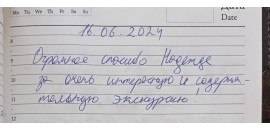 Mo Tu We Th Fr Sa Su
Дата
Date
16.06.2024
8
Огромное спасибо Надежде
9
за очень интересную и содержа-
10
тельную экскурсию!
11
12